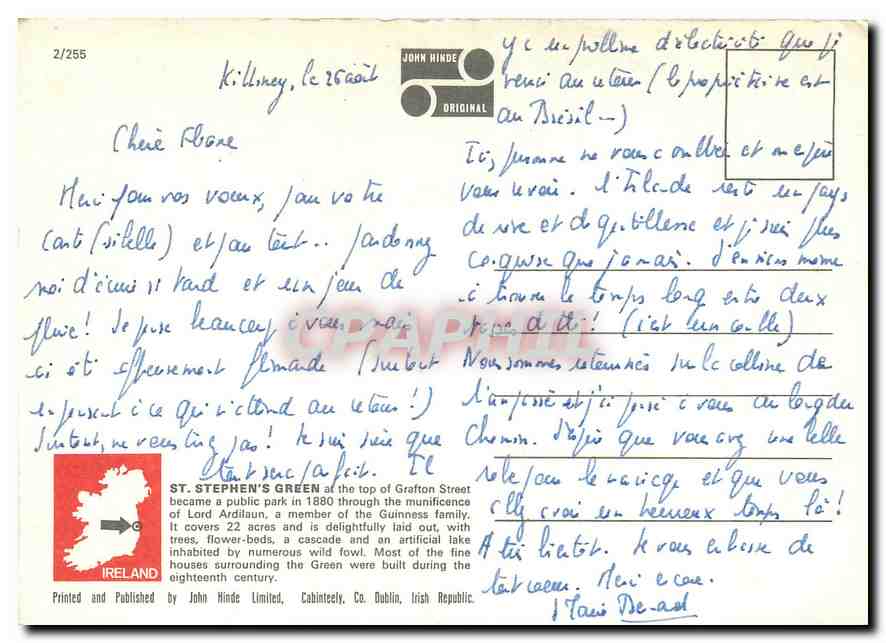 2/255
JOHN HINDE
ORIGINAL
Killiney, le 26 août
Chère
Merci pour vos voeux, pour votre
carte (si belle) et pour tout.. pardonnez
moi d'écrire si tard et un jour de
pluie! Je pense beaucoup à vous mais
ai été affreusement flemarde (surtout
en pensant à ce qui m'attend au retour!)
Surtout, ne vous pas! Je suis sûre que
tout sera parfait. Il
y a un problème d'électricité que je
verrai au retour (le propriétaire est
au Brésil —)
Ici, personne ne vous a oubliée et on espère
vous revoir. L'Irlande reste un pays
de rêve et de gentillesse et je suis plus
que jamais. J'en viens même
à trouver le temps long entre deux
tasses de thé! (c'est un comble)
Nous sommes retournés sur la colline de
l'an passé et j'ai pensé à vous au long du
chemin. J'espère que vous avez une belle
robe pour le mariage et que vous
allez avoir un heureux temps là!
A très bientôt. Je vous embrasse de
tout coeur. Merci encore.
Marie
CPAPHIL
IRELAND
ST. STEPHEN'S GREEN at the top of Grafton Street
became a public park in 1880 through the munificence
of Lord Ardilaun, a member of the Guinness family.
It covers 22 acres and is delightfully laid out, with
trees, flower-beds, a cascade and an artificial lake
inhabited by numerous wild fowl. Most of the fine
houses surrounding the Green were built during the
eighteenth century.
Printed and Published by John Hinde Limited, Cabinteely, Co. Dublin, Irish Republic.